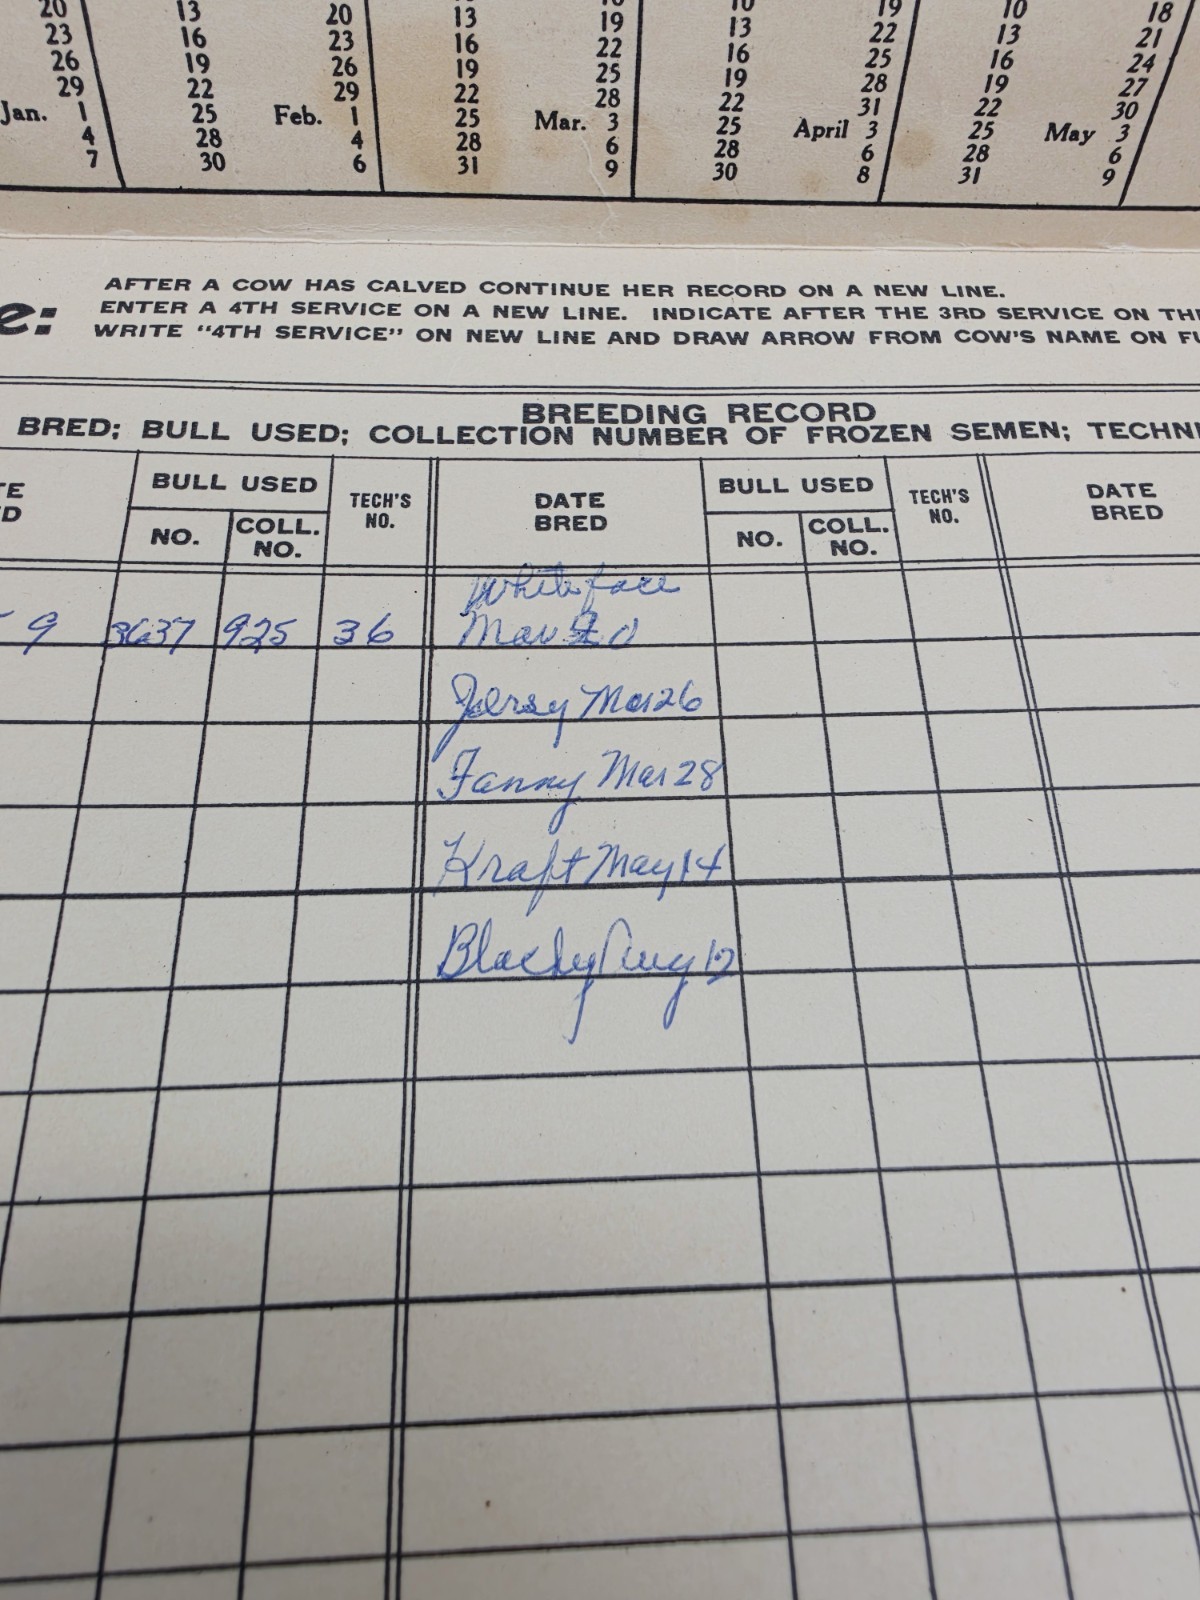 20 13 20 13 19 13 19 13 18
23 16 23 16 22 16 22 16 21
26 19 26 19 25 19 25 19 24
29 22 29 22 28 22 28 22 27
Jan. 1 25 Feb. 1 25 Mar. 3 25 31 25 30
4 28 4 28 6 28 April 3 28 May 3
7 30 6 31 9 30 6 31 6
8 9
e: AFTER A COW HAS CALVED CONTINUE HER RECORD ON A NEW LINE.
ENTER A 4TH SERVICE ON A NEW LINE. INDICATE AFTER THE 3RD SERVICE ON TH
WRITE "4TH SERVICE" ON NEW LINE AND DRAW ARROW FROM COW'S NAME ON FU
BREEDING RECORD
BRED; BULL USED; COLLECTION NUMBER OF FROZEN SEMEN; TECHNI
TE BULL USED TECH'S DATE BULL USED TECH'S DATE
D NO. COLL. NO. NO. BRED NO. COLL. NO. NO. BRED
Whiteface
9 3637 925 36 Mar 20
Jersy Mar 26
Fanny Mar 28
Kraft May 14
Blacky Aug 12